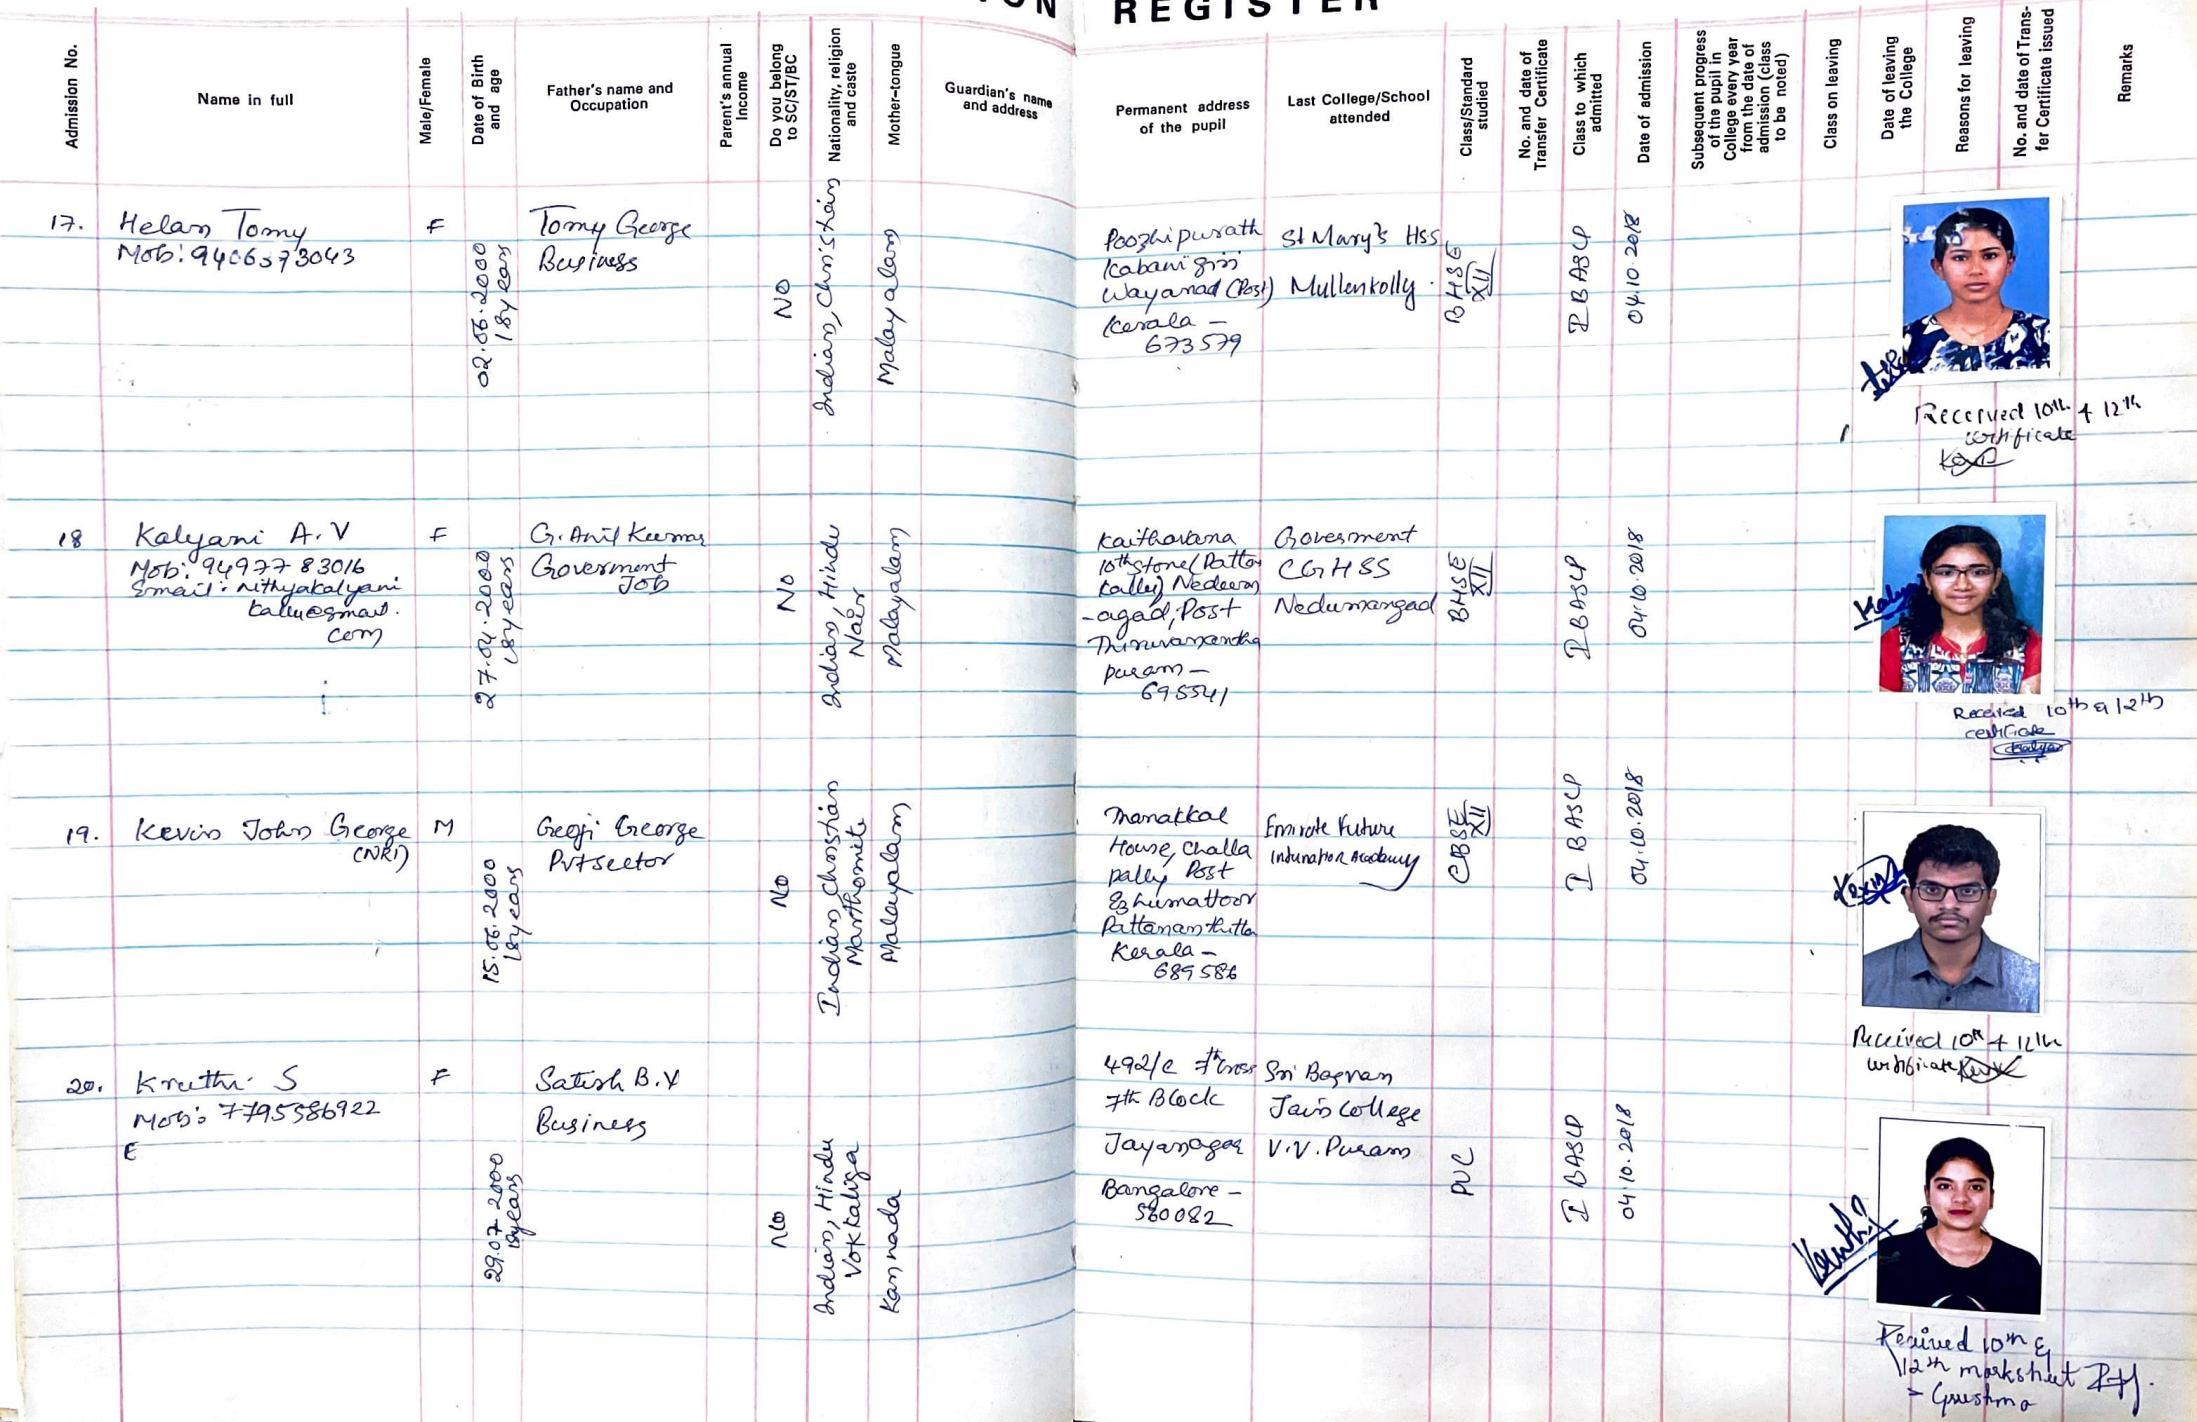 REGISTER
Admission No.
Name in full
Male/Female
Date of Birth
and age
Father's name and
Occupation
Parent's annual
Income
Do you belong
to SC/ST/BC
Nationality, religion
and caste
Mother-tongue
Guardian's name
and address
Permanent address
of the pupil
Last College/School
attended
Class/Standard
studied
No. and date of
Transfer Certificate
Class to which
admitted
Date of admission
Subsequent progress
of the pupil in
College every year
from the date of
admission (class
to be noted)
Class on leaving
Date of leaving
the College
Reasons for leaving
No. and date of Trans-
fer Certificate issued
Remarks
17.
Helan Tomy
Mob:
F
02.06.2000
18years
Tomy George
Business
NO
Indian, Christian
Malayalam
Poozhipurath
Kabanigiri
Wayanad (Post)
Kerala -
673579
St Mary's Hss
Mullenkolly.
BHSE
XII
I BASLP
04.10.2018
Received 10th + 12th
certificate
18
Kalyani A.V
Mob: 9497783016
Email: nithyakalyani
kallu@gmail.
com
F
27.04.2000
18years
G. Anil Kumar
Goverment
JOB
No
Indian, Hindu
Nair
Malayalam
Kaithavana
10thstone (Patta
kally) Nedum
-agad, Post
Thiruvanantha
puram -
695541
Goverment
CGHSS
Nedumangad
BHSE
XII
I BASLP
04.10.2018
Received 10th & 12th
certificate
19.
Kevin John George
(NRI)
M
15.06.2000
18years
Georji George
Pvtsector
No
Indian, Christian
Marthomite
Malayalam
Thanakkal
House, Challa
pally Post
Ezhumattoor
Pattanamthitta
Kerala -
689586
Emirate Future
International Academy
CBSE
XII
I BASLP
04.10.2018
Received 10th + 12th
certificate
20.
Kruthi S
Mob: 7795586922
E
F
29.07.2000
18years
Satish B.Y
Business
No
Indian, Hindu
Vokkaliga
Kannada
492/c 7th cross
7th Block
Jayanagar
Bangalore -
560082
Sri Bagvan
Jain College
V.V. Puram
PUC
I BASLP
04.10.2018
Kruthi
Received 10th &
12th marksheet
- Grushma